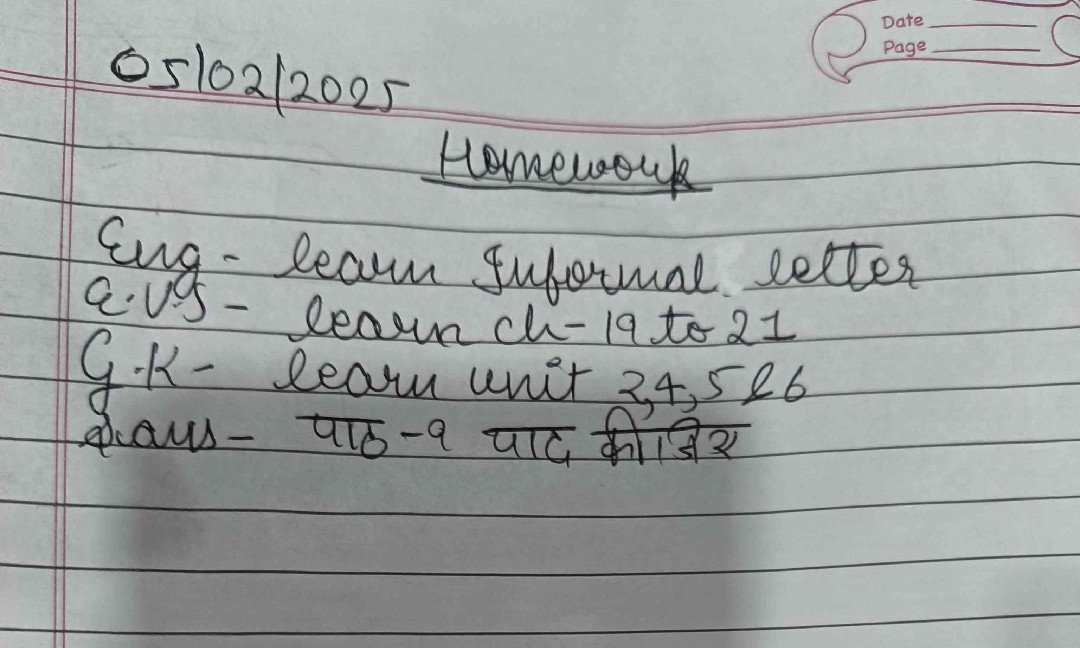 Date
Page
05/02/2025
Homework
Eng - learn Informal letter
E.V.S - learn ch-19 to 21
G.K - learn unit 3,4,5 & 6
पाठ -9 याद कीजिए